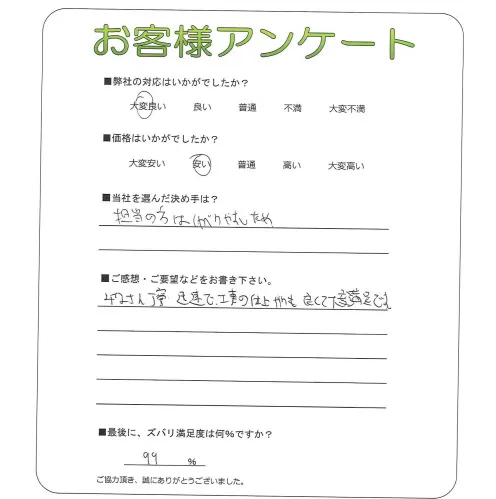 お客様アンケート
■弊社の対応はいかがでしたか？
大変良い 良い 普通 不満 大変不満
■価格はいかがでしたか？
大変安い 安い 普通 高い 大変高い
■当社を選んだ決め手は？
担当の方はしゃべりやすいため
■ご感想・ご要望などをお書き下さい。
丁寧 迅速で、工事の仕上がりも良くて大変満足です。
■最後に、ズバリ満足度は何％ですか？
99 ％
ご協力頂き、誠にありがとうございました。